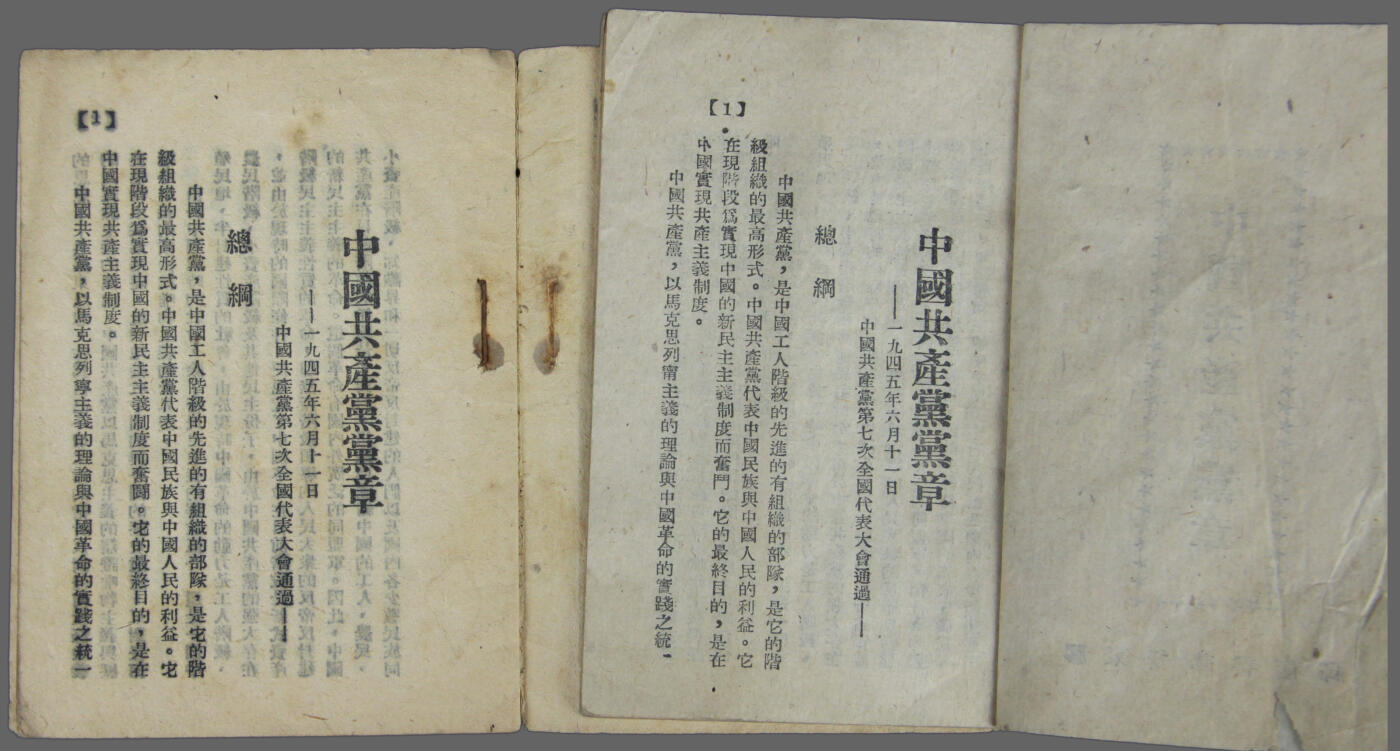 中國共產黨黨章
——一九四五年六月十一日
中國共產黨第七次全國代表大會通過——
總綱
中國共產黨,是中國工人階級的先進的有組織的部隊,是它的階
級組織的最高形式。中國共產黨代表中國民族與中國人民的利益。它
在現階段爲實現中國的新民主主義制度而奮鬥。它的最終目的,是在
中國實現共產主義制度。
中國共產黨,以馬克思列甯主義的理論與中國革命的實踐之統一
【1】
中國共產黨黨章
——一九四五年六月十一日
中國共產黨第七次全國代表大會通過——
總綱
中國共產黨,是中國工人階級的先進的有組織的部隊,是它的階
級組織的最高形式。中國共產黨代表中國民族與中國人民的利益。它
在現階段爲實現中國的新民主主義制度而奮鬭。它的最終目的,是在
中國實現共產主義制度。
中國共產黨,以馬克思列寧主義的理論與中國革命的實踐之統一
【1】